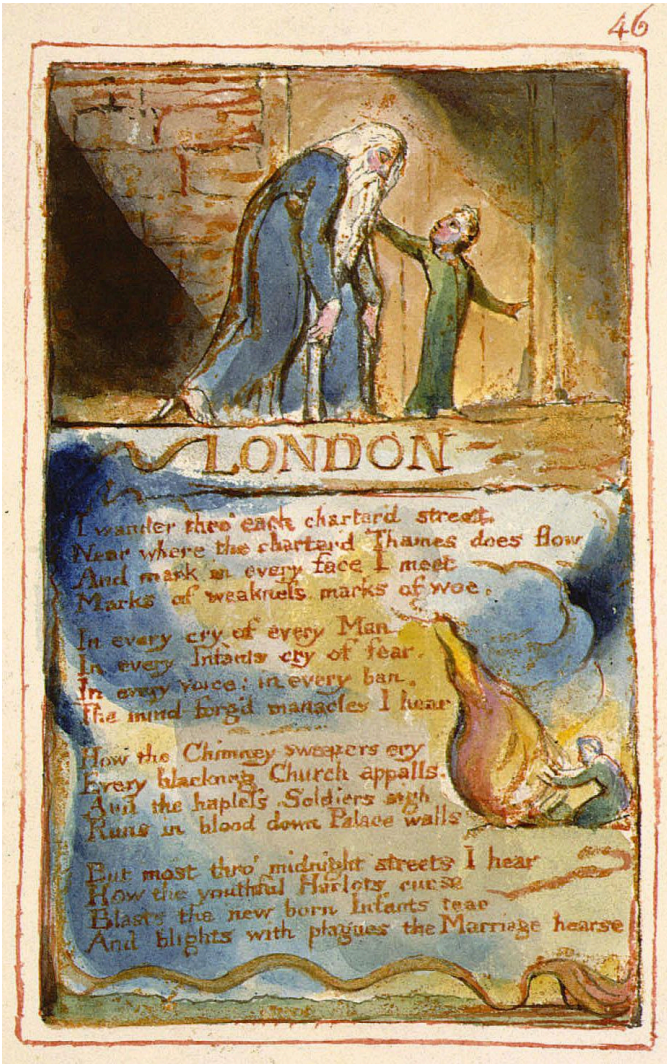 46
LONDON
I wander thro' each charterd street,
Near where the charterd Thames does flow
And mark in every face I meet
Marks of weakneſs, marks of woe.
In every cry of every Man,
In every Infants cry of fear,
In every voice: in every ban,
The mind-forg'd manacles I hear
How the Chimney sweepers cry
Every blackning Church appalls,
And the hapleſs Soldiers sigh
Runs in blood down Palace walls
But most thro' midnight streets I hear
How the youthful Harlots curse
Blasts the new born Infants tear
And blights with plagues the Marriage hearse